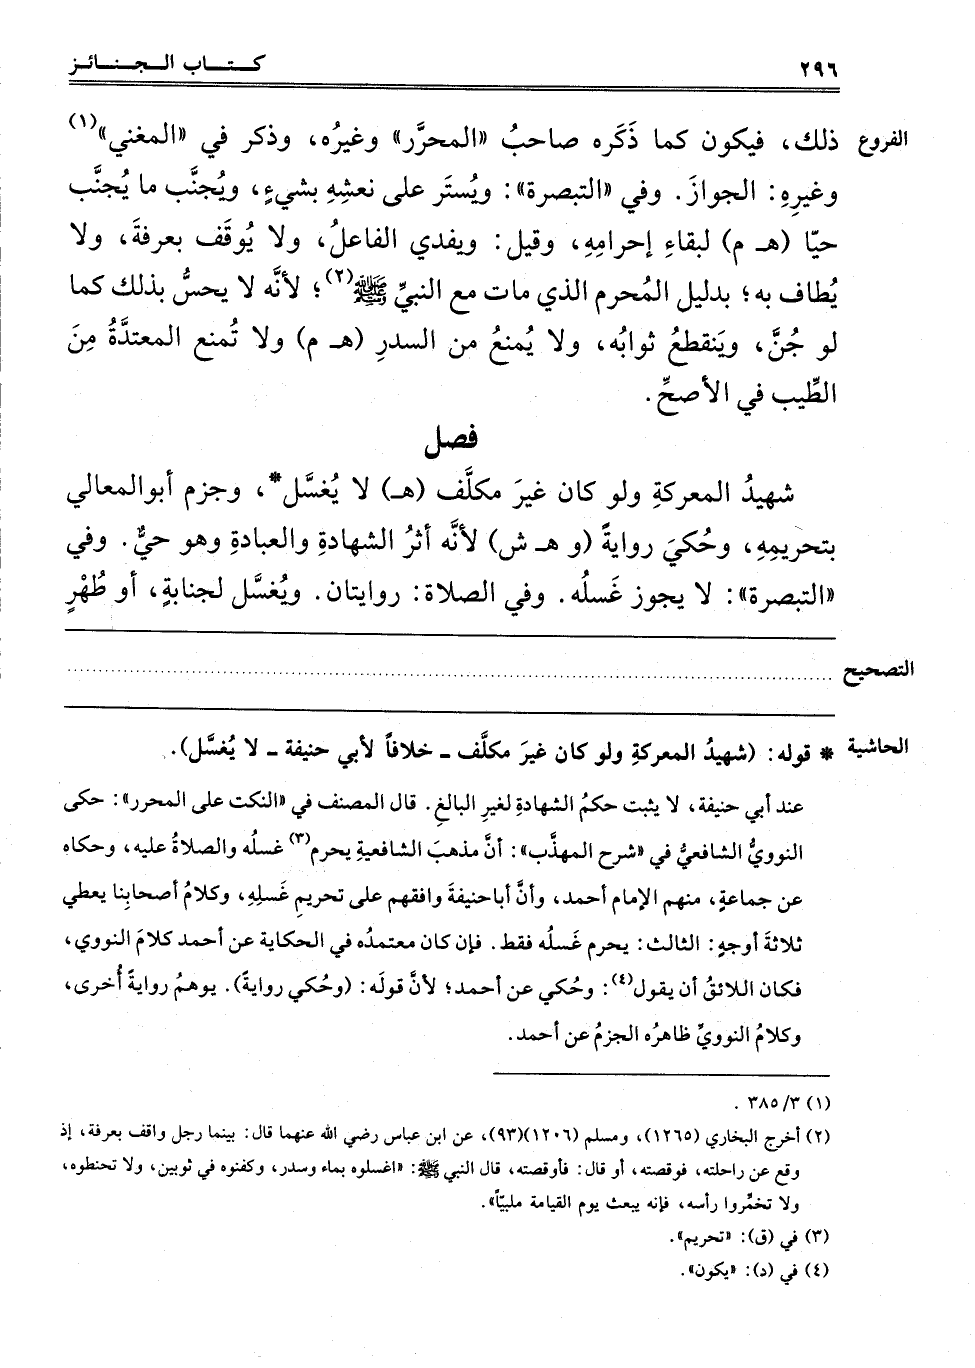 ٢٩٦
كـتـاب الـجـنـائـز
الفروع
ذلك، فيكون كما ذَكَره صاحبُ «المحرَّر» وغيرُه، وذكر في «المغني»(١)
وغيرِهِ: الجوازَ. وفي «التبصرة»: ويُستَر على نعشِهِ بشيءٍ، ويُجنَّب ما يُجنَّب
حيّا (هـ م) لبقاءِ إحرامِهِ، وقيل: ويفدي الفاعلُ، ولا يُوقَف بعرفةَ، ولا
يُطاف به؛ بدليل المُحرم الذي مات مع النبيِّ ﷺ(٢)؛ لأنَّه لا يحسُّ بذلك كما
لو جُنَّ، ويَنقطعُ ثوابُه، ولا يُمنعُ من السدرِ (هـ م) ولا تُمنع المعتدَّةُ مِنَ
الطِّيب في الأصحِّ.
فصل
شهيدُ المعركةِ ولو كان غيرَ مكلَّف (هـ) لا يُغسَّل*، وجزم أبوالمعالي
بتحريمِهِ، وحُكيَ روايةً (و هـ ش) لأنَّه أثرُ الشهادةِ والعبادةِ وهو حيٌّ. وفي
«التبصرة»: لا يجوز غَسلُه. وفي الصلاة: روايتان. ويُغسَّل لجنابةٍ، أو طُهْرٍ
التصحيح
الحاشية
* قوله: (شهيدُ المعركةِ ولو كان غيرَ مكلَّف ـ خلافاً لأبي حنيفة ـ لا يُغسَّل).
عند أبي حنيفة، لا يثبت حكمُ الشهادةِ لغيرِ البالغِ. قال المصنف في «النكت على المحرر»: حكى
النوويُّ الشافعيُّ في «شرح المهذَّب»: أنَّ مذهبَ الشافعيةِ يحرم(٣) غسلُه والصلاةُ عليه، وحكاه
عن جماعةٍ، منهم الإمام أحمد، وأنَّ أباحنيفةَ وافقهم على تحريمِ غَسلِهِ، وكلامُ أصحابِنا يعطي
ثلاثةَ أوجهٍ: الثالث: يحرم غَسلُه فقط. فإن كان معتمدُه في الحكاية عن أحمد كلامَ النووي،
فكان اللائقُ أن يقول(٤): وحُكي عن أحمد؛ لأنَّ قولَه: (وحُكي روايةً). يوهمُ روايةً أُخرى،
وكلامُ النوويِّ ظاهرُه الجزمُ عن أحمد.
(١) ٣/ ٣٨٥ .
(٢) أخرج البخاري (١٢٦٥)، ومسلم (١٢٠٦)(٩٣)، عن ابن عباس رضي الله عنهما قال: بينما رجل واقف بعرفة، إذ
وقع عن راحلته، فوقصته، أو قال: فأوقصته، قال النبي ﷺ: «اغسلوه بماء وسدر، وكفنوه في ثوبين، ولا تحنطوه،
ولا تخمِّروا رأسه، فإنه يبعث يوم القيامة ملبيّاً».
(٣) في (ق): «تحريم».
(٤) في (د): «يكون».